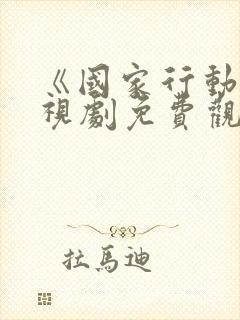 《國家行動
視劇免費觀
拉馬迪